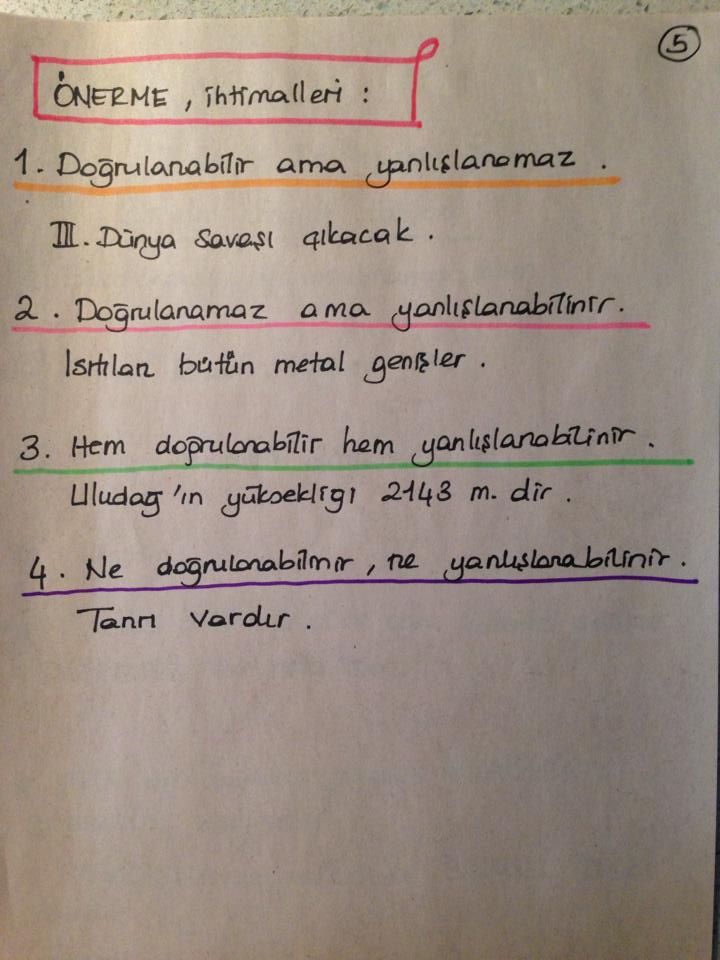 5
ÖNERME, ihtimalleri :
1. Doğrulanabilir ama yanlışlanamaz.
III. Dünya savaşı çıkacak.
2. Doğrulanamaz ama yanlışlanabilinir.
Isıtılan bütün metal genişler.
3. Hem doğrulanabilir hem yanlışlanabilinir.
Uludağ'ın yüksekligi 2143 m. dir.
4. Ne doğrulanabilinir, ne yanlışlanabilinir.
Tanrı vardır.